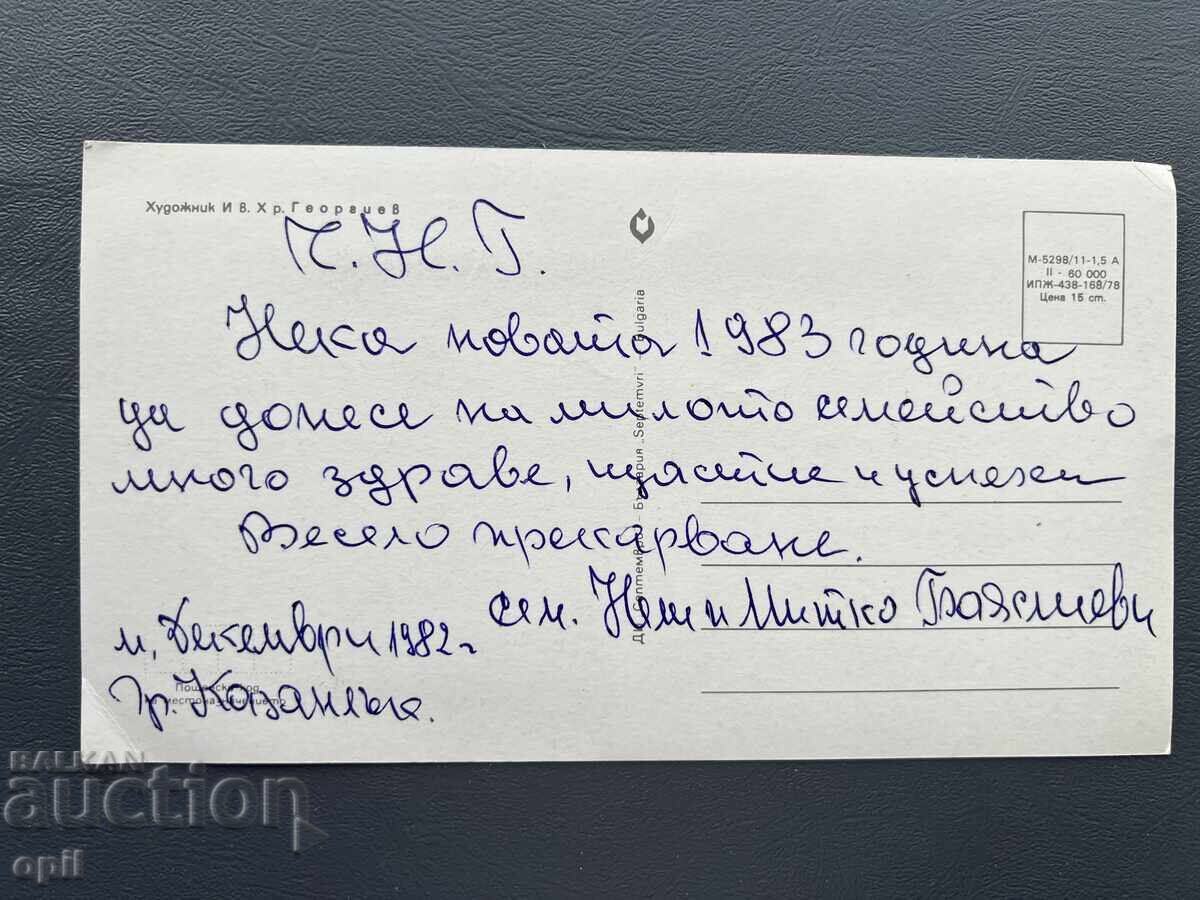 Художник Ив. Хр. Георгиев
Ч.Н.Г.
М-5298/11-1,5 А
II - 60 000
ИПЖ-438-168/78
Цена 15 ст.
Нека новата 1983 година
да донесе на милото семейство
много здраве, щастие и успехи
Весело прекарване.
сем. и Митко
м. Декември 1982 г
гр. Казанлък.
ДП „Септември" – България „Septemvri" Bulgaria
Пощенски код
местоназначението
BALKAN
auction
opil